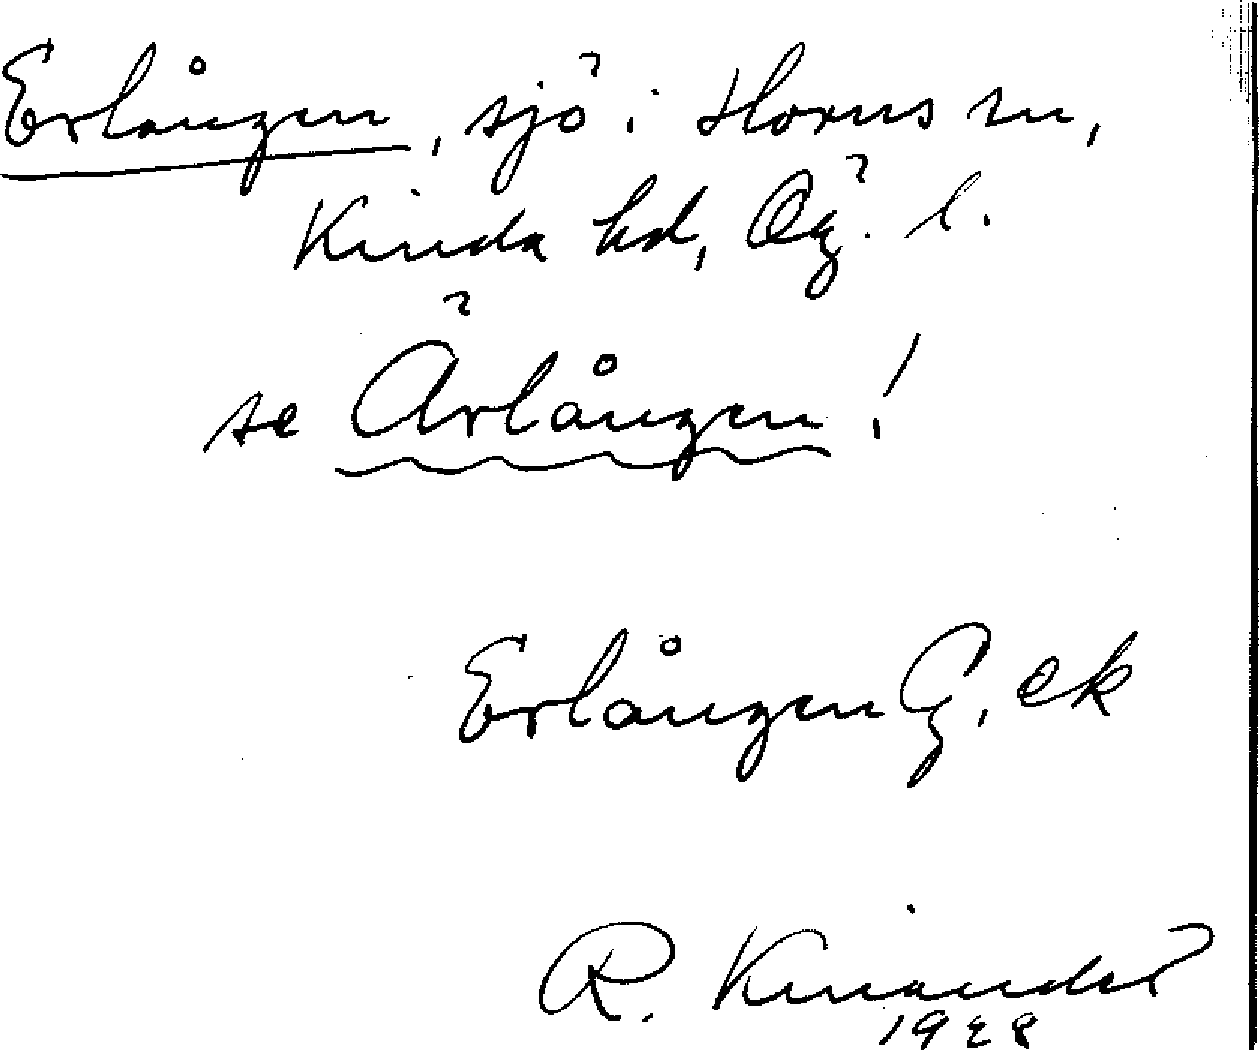 Erlången, sjö i Horns sn,
Kinda hd, Ög. l.
se Ärlången!
Erlången G, ek
R. Kinander
1928